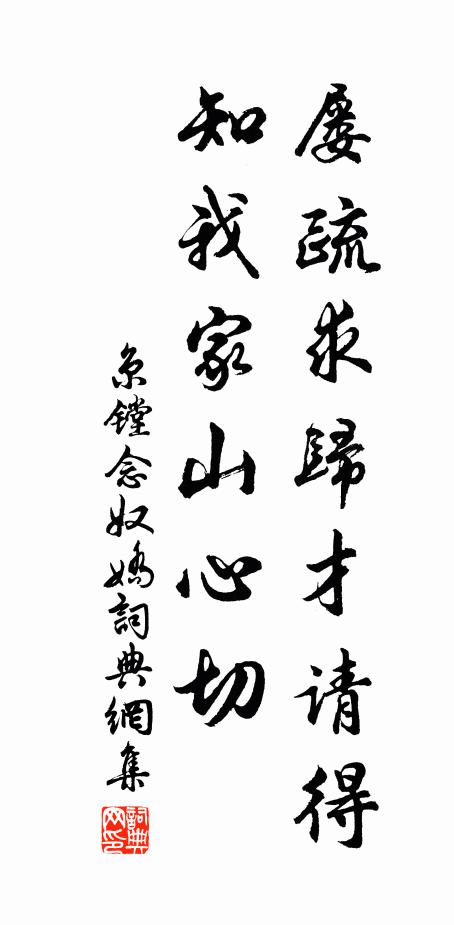 屡疏求歸才请得
知我家山心切
京镗念奴嬌詞典網集
詞典网印